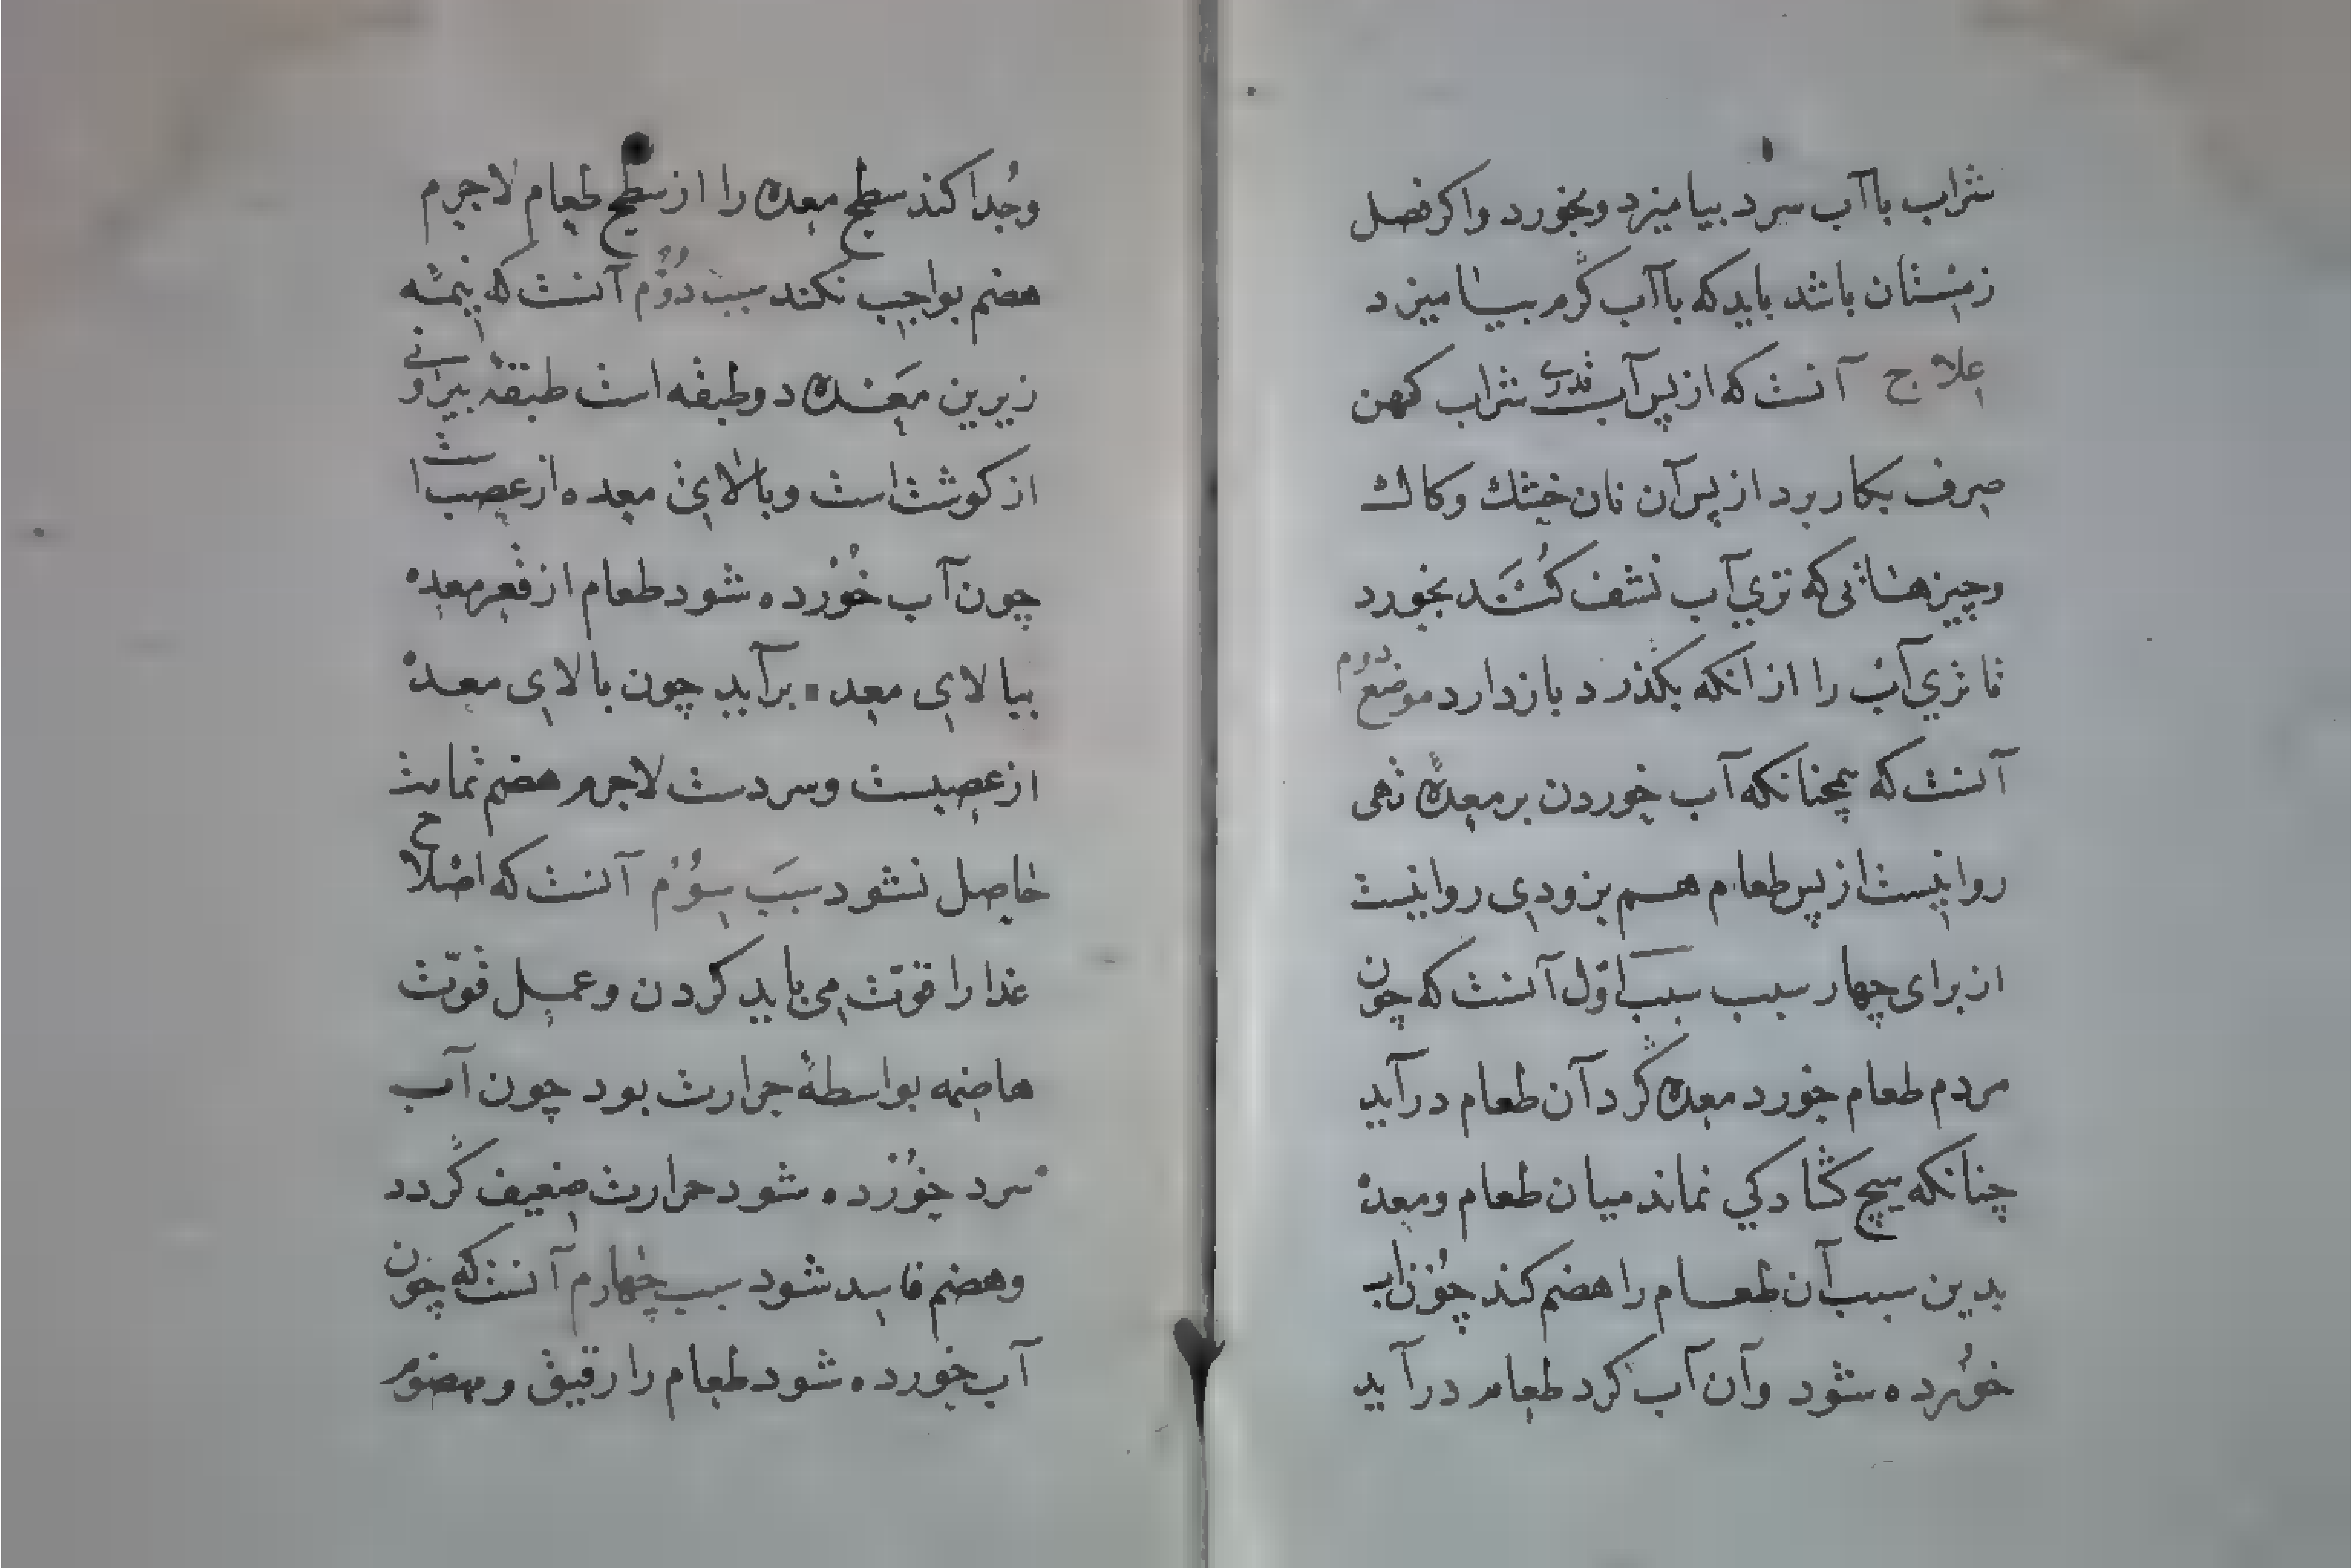 شراب با آب سرد بیامیزد و بخورد واکر فصل
زمستان باشد باید که با آب کرم بیامیزد
علاج آنست که از پس آب قدری شراب کهن
صرف بکار برد از پس آن نان خشك وکاك
وچیزهائی که تری آب نشف کند بخورد
تا تری آب را از انکه بکذرد باز دارد موضع دوم
آنست که همچنانکه آب خوردن بر معده تهی
روا نیست از پس طعام هم بزودی روا نیست
از برای چهار سبب سبب اول آنست که چون
مردم طعام خورد معده کرد آن طعام درآید
چنانکه هیچ کشادکی نماند میان طعام ومعده
بدین سبب آن طعام را هضم کند چون آب
خورده شود وآن آب کرد طعام درآید
وجدا کند سطح معده را از سطح طعام لاجرم
هضم بواجب نکند سبب دوم آنست که نیمه
زیرین معده دو طبقه است طبقه بیرونی
از کوشت است وبالای معده از عصب است
چون آب خورده شود طعام از قعر معده
ببالای معده برآید چون بالای معده
از عصبست وسردست لاجرم هضم تمامت
حاصل نشود سبب سوم آنست که اصلاح
غدا را قوت می باید کردن وعمل قوت
هاضمه بواسطه حرارت بود چون آب
سرد خورده شود حرارت ضعیف کردد
وهضم فاسد شود سبب چهارم آنست که چون
آب خورده شود طعام را رقیق و